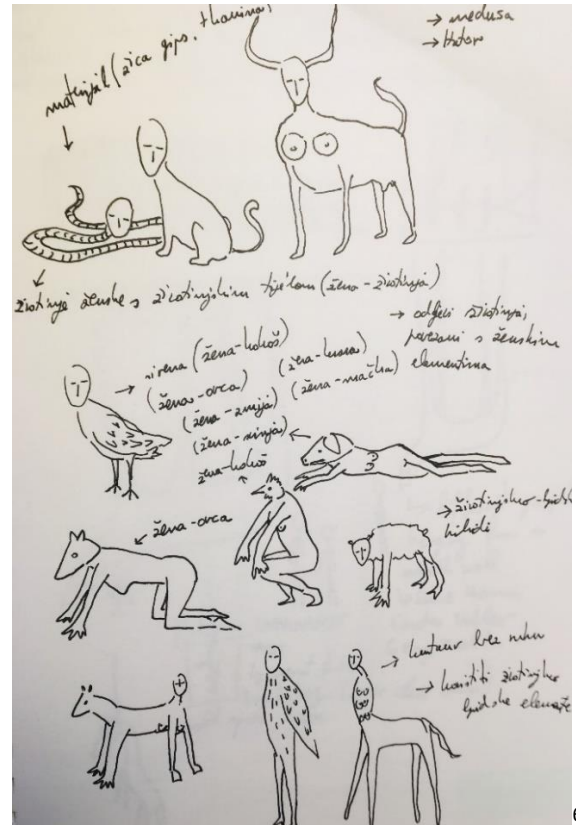 materijal (žica, gips, tkanina)
→ medusa
→ Hator
životinja ženske s životinjskim tijelom (žena-životinja)
→ odljevi životinja,
povezani s ženskim
elementima
→ sirena (žena-kokoš)
(žena-ovca)
(žena-krava)
(žena-zmija)
(žena-mačka)
(žena-svinja)
žena-kokoš
žena-ovca
→ životinjsko-ljudski
hibridi
→ kentaur bez ruku
→ koristiti životinjske
ljudske elemente
6